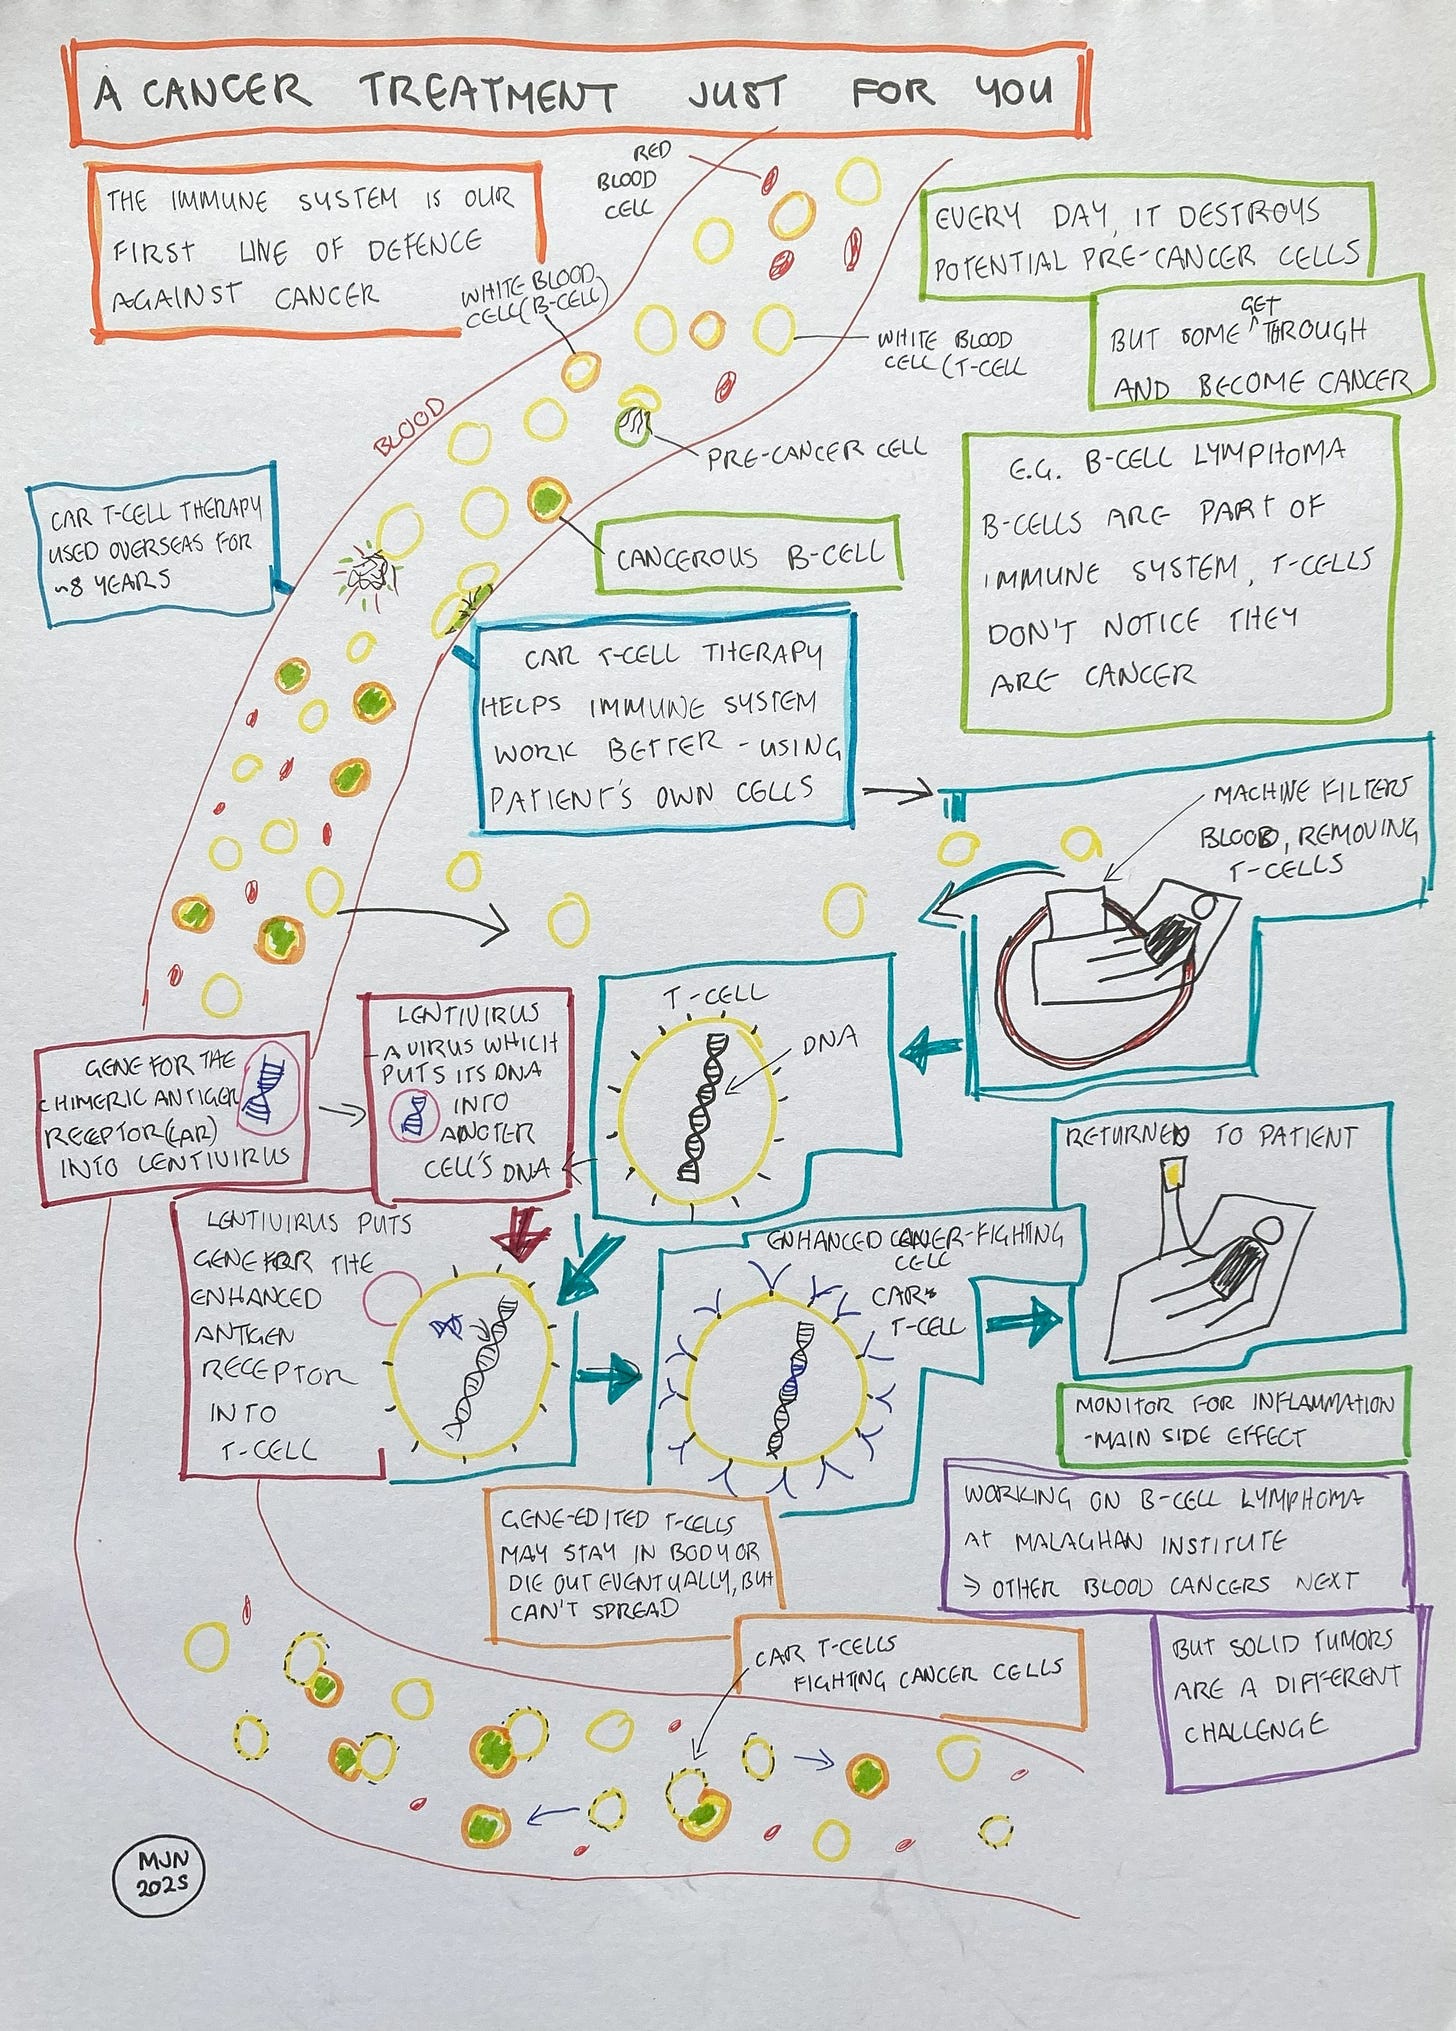 A CANCER TREATMENT JUST FOR YOU
THE IMMUNE SYSTEM IS OUR
FIRST LINE OF DEFENCE
AGAINST CANCER
RED
BLOOD
CELL
WHITE BLOOD
CELL (B-CELL)
EVERY DAY, IT DESTROYS
POTENTIAL PRE-CANCER CELLS
BUT SOME GET THROUGH
AND BECOME CANCER
WHITE BLOOD
CELL (T-CELL
BLOOD
PRE-CANCER CELL
E.G. B-CELL LYMPHOMA
B-CELLS ARE PART OF
IMMUNE SYSTEM, T-CELLS
DON'T NOTICE THEY
ARE CANCER
CAR T-CELL THERAPY
USED OVERSEAS FOR
~8 YEARS
CANCEROUS B-CELL
CAR T-CELL THERAPY
HELPS IMMUNE SYSTEM
WORK BETTER - USING
PATIENT'S OWN CELLS
MACHINE FILTERS
BLOOD, REMOVING
T-CELLS
T-CELL
DNA
GENE FOR THE
CHIMERIC ANTIGEN
RECEPTOR (CAR)
INTO LENTIVIRUS
LENTIVIRUS
- A VIRUS WHICH
PUTS ITS DNA
INTO
ANOTER
CELL'S DNA
LENTIVIRUS PUTS
GENE FOR THE
ENHANCED
ANTIGEN
RECEPTOR
INTO
T-CELL
ENHANCED CANCER-FIGHTING
CELL
CAR
T-CELL
RETURNED TO PATIENT
MONITOR FOR INFLAMMATION
- MAIN SIDE EFFECT
GENE-EDITED T-CELLS
MAY STAY IN BODY OR
DIE OUT EVENTUALLY, BUT
CAN'T SPREAD
WORKING ON B-CELL LYMPHOMA
AT MALAGHAN INSTITUTE
→ OTHER BLOOD CANCERS NEXT
BUT SOLID TUMORS
ARE A DIFFERENT
CHALLENGE
CAR T-CELLS
FIGHTING CANCER CELLS
MJN
2025